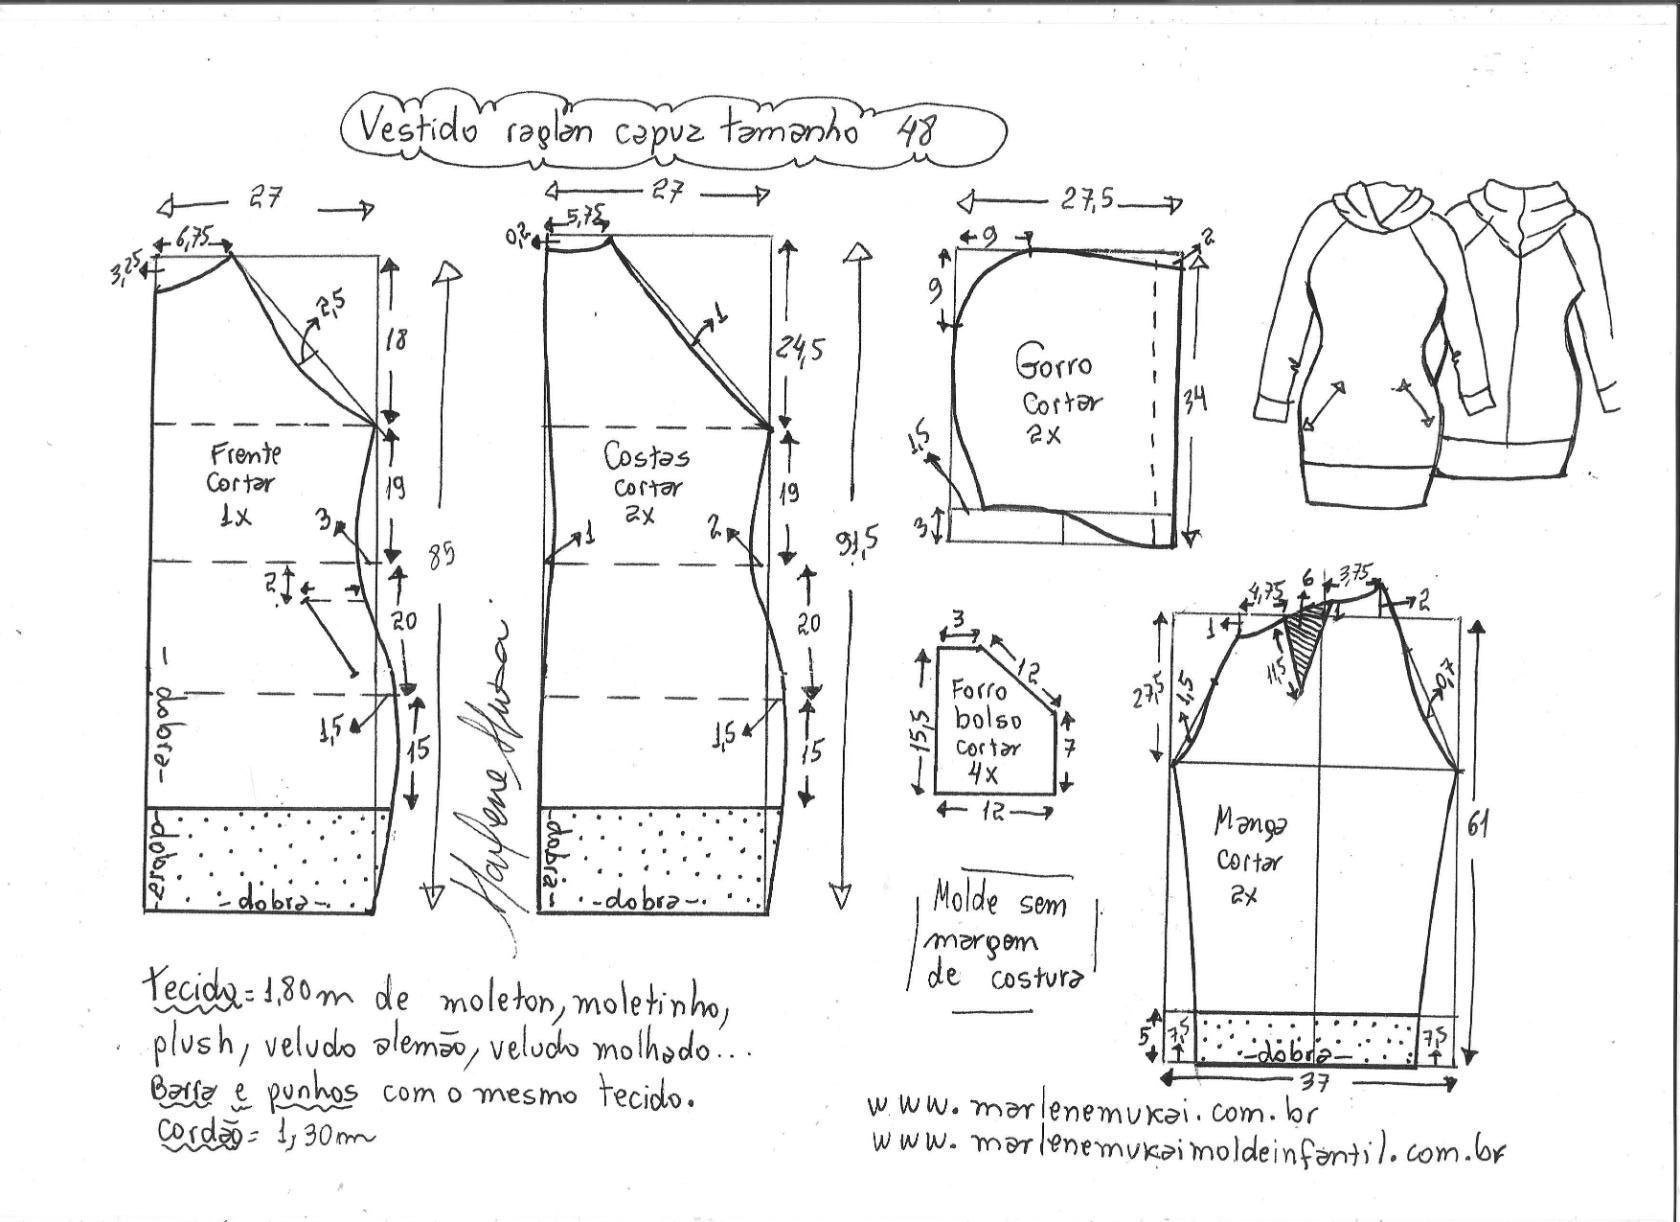 Vestido raglan capuz tamanho 48
27
6,75
3,25
2,5
18
Frente
Cortar
1x
19
3
2
20
1,5
15
85
-dobra-
-dobra-
-dobra-
27
5,75
0,2
1
24,5
Costas
cortar
2x
19
1
2
20
1,5
15
91,5
-dobra-
-dobra-
Marlene Mukai
27,5
9
2
9
Gorro
Cortar
2x
34
1,5
3
3
12
Forro
bolso
cortar
4x
15,5
7
12
4,75
6
3,75
1
1
2
11,5
27,5
1,5
0,7
Manga
Cortar
2x
61
5
7,5
-dobra-
7,5
37
Molde sem
margem
de costura
tecido=1,80m de moleton, moletinho,
plush, veludo alemão, veludo molhado...
Barra e punhos com o mesmo tecido.
Cordão= 1,30m
www.marlenemukai.com.br
www.marlenemukaimoldeinfantil.com.br